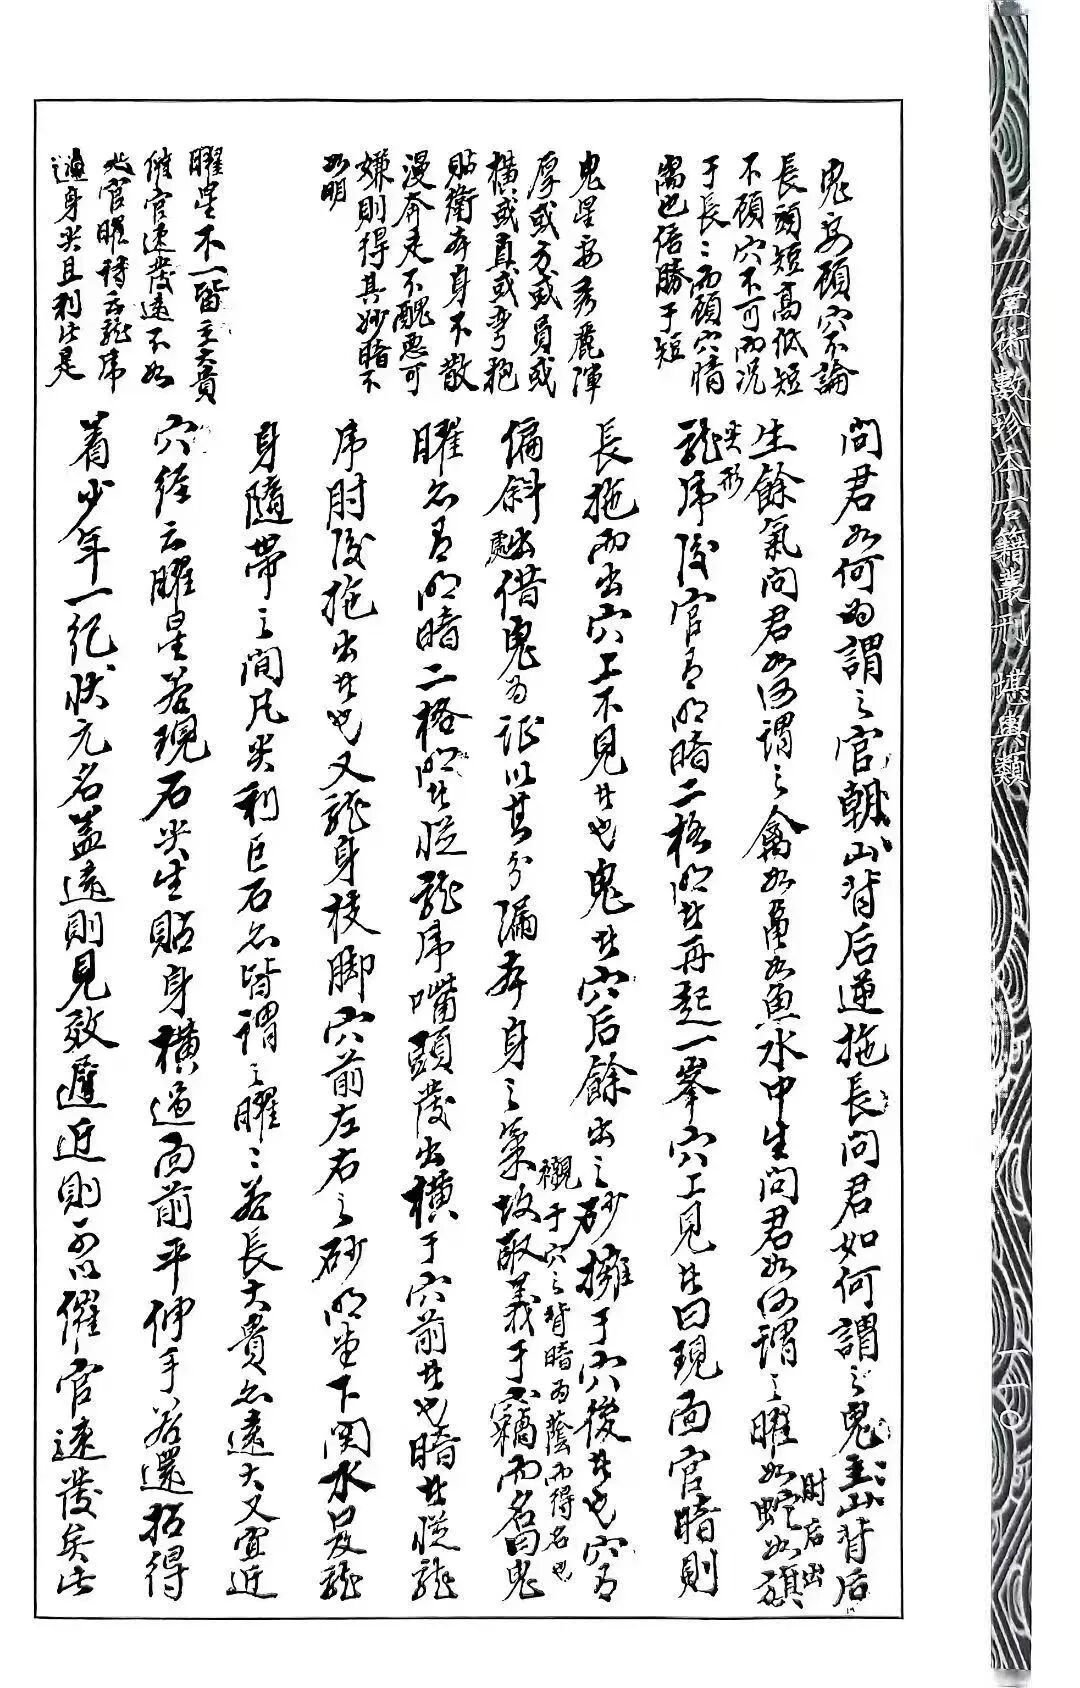 心一堂術數珍本古籍叢刊 堪輿類
一一〇
鬼要顧穴不論
長頭短高低短
不顧穴不可而況
于長〻而顧穴情
當也倍勝于短
鬼星要秀麗渾
厚或方或員或
橫或直或彎抱
貼衛本身不散
漫奔走不醜惡可
嫌則得其妙暗不
如明
曜星不一皆主大貴
催官速發遠不如
近官曜詩云龍虎
遍身尖且利此是
問君如何為謂之官朝山背后逆拖長問君如何謂之鬼主山背后
生餘氣問君如何謂之禽如龜如魚水中生問君如何謂之曜如蛇如旗
尖形
肘后出
龍虎後官有明暗二格明者再起一峯穴上見者曰現面官暗則
長拖而出穴上不見者也鬼者穴后餘出之砂擁于穴後者也穴有
襯于穴之背暗為蔭而得名也
偏斜出借鬼為証以其分漏本身之氣故取義于竊而名曰鬼
處
曜亦有明暗二格明者從龍虎嘴頭發出橫于穴前者也暗者從龍
虎肘後拖出者也又龍身枝脚穴前左右之砂明堂下関水口及龍
身隨帶之間凡尖利巨石亦皆謂之曜〻若長大貴亦遠大又宜近
穴経云曜星若現石尖生貼身橫過面前平伸手若還拓得
着少年一紀状元名盖遠則見效遲近則可以催官速發矣此